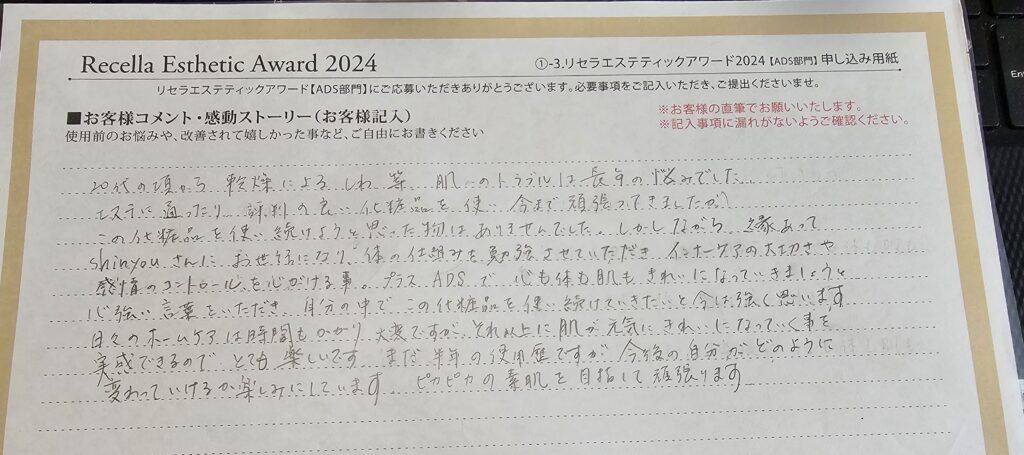 Recella Esthetic Award 2024
①-3.リセラエステティックアワード2024【ADS部門】申し込み用紙
リセラエステティックアワード【ADS部門】にご応募いただきありがとうございます。必要事項をご記入いただき、ご提出くださいませ。
■お客様コメント・感動ストーリー（お客様記入）
使用前のお悩みや、改善されて嬉しかった事など、ご自由にお書きください
※お客様の直筆でお願いいたします。
※記入事項に漏れがないようご確認ください。
20代の頃から 乾燥による しわ 等 肌へのトラブルは 長年の悩みでした
エステに 通ったり 評判の良い 化粧品を 使い 今まで 頑張ってきましたが
この化粧品を 使い続けようと思った物は ありませんでした。しかしながら 縁あって
shinyouさんに お世話になり 体の仕組みを 勉強させていただき インナーケアの大切さや
感情のコントロールを心がける事。プラス ADSで 心も体も肌も きれいになっていきましょうと
心強い 言葉をいただき 自分の中で この化粧品を 使い続けていきたいと 今は強く思います
日々のホームケアは時間もかかり 大変ですが それ以上に 肌が 元気に きれいになっていく事を
実感できるので とても 楽しいです まだ 半年の使用歴ですが 今後の自分が どのように
変わっていけるか楽しみにしています ピカピカの素肌を目指して頑張ります